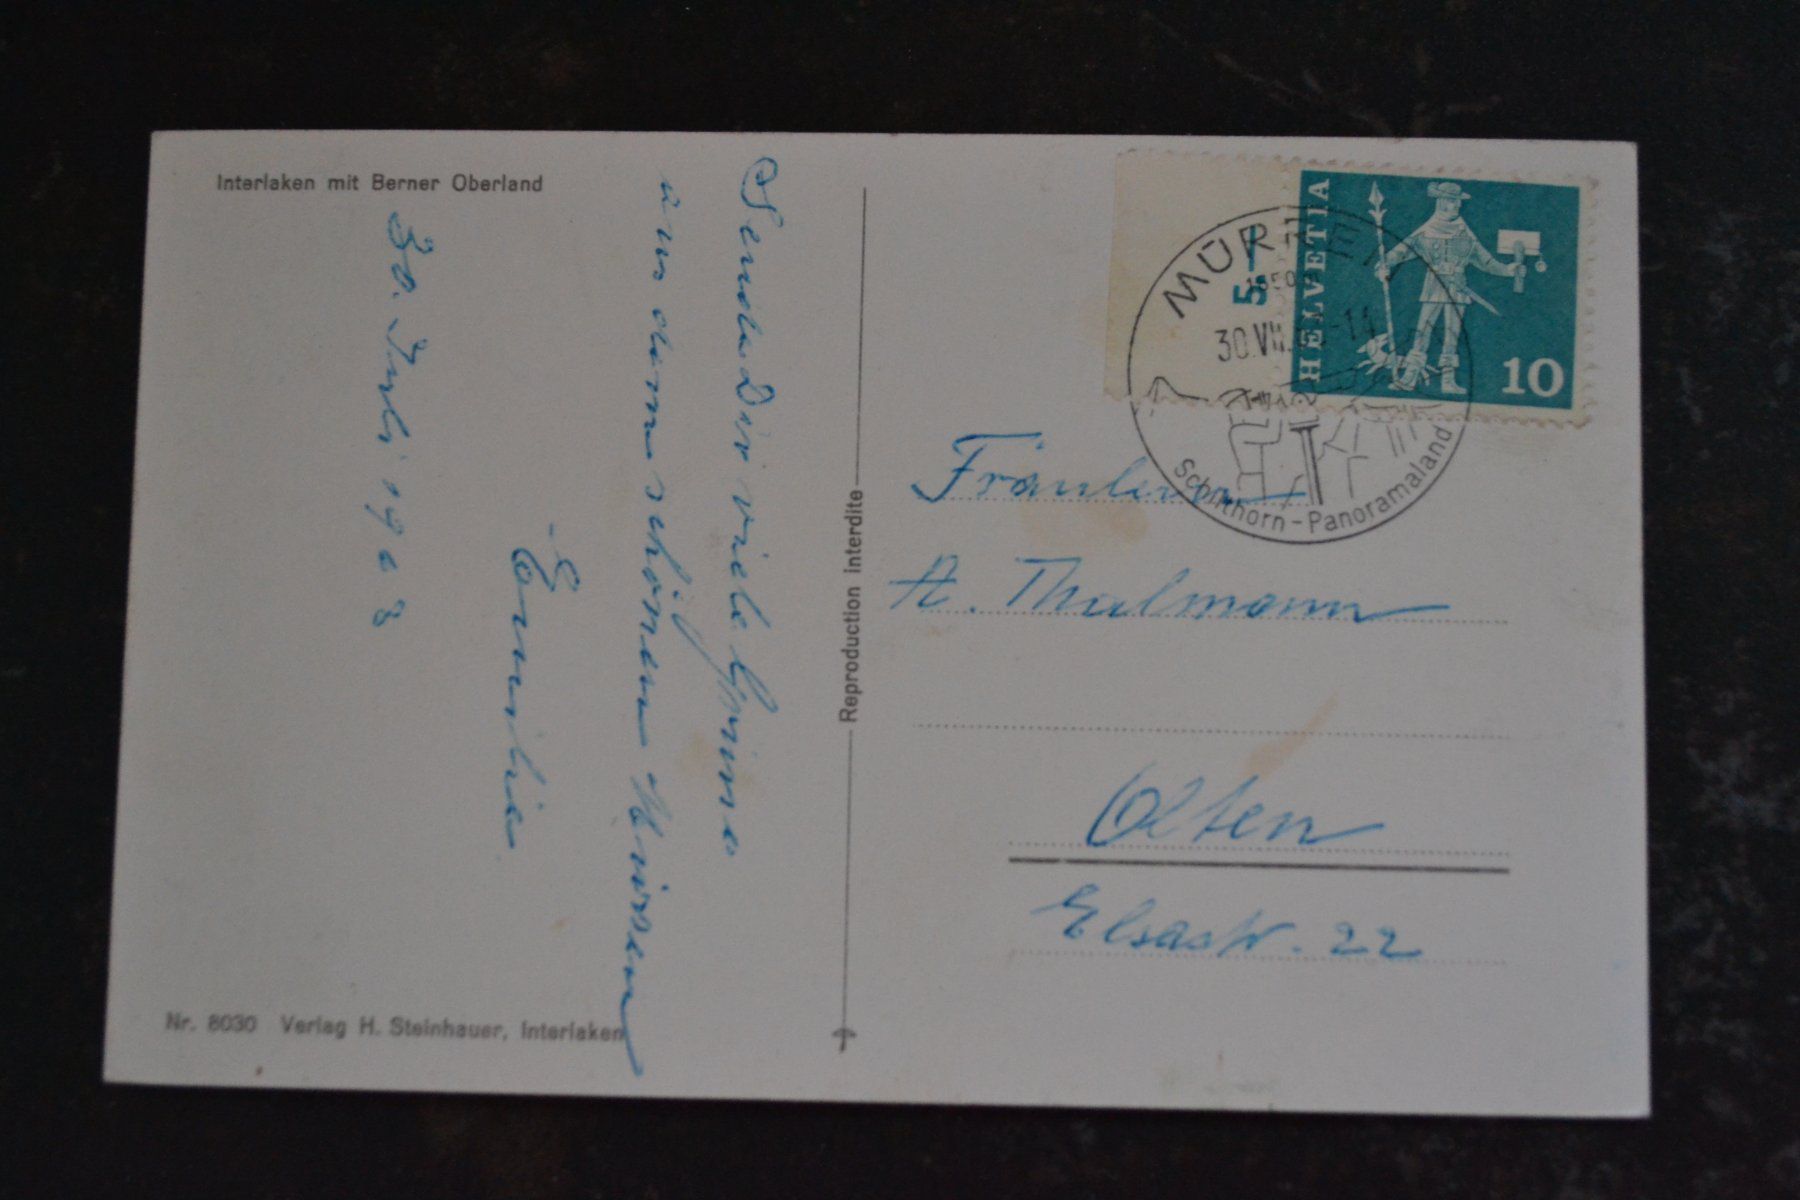 Interlaken mit Berner Oberland
Sende Dir viele Grüsse
aus dem schönen Mürren
Emilie
30. Juli 1968
Nr. 8030 Verlag H. Steinhauer, Interlaken
Reproduction interdite
HELVETIA
10
5
MÜRREN
30.VII. -14
Schilthorn-Panoramaland
Fräulein
A. Thalmann
Olten
Elsastr. 22